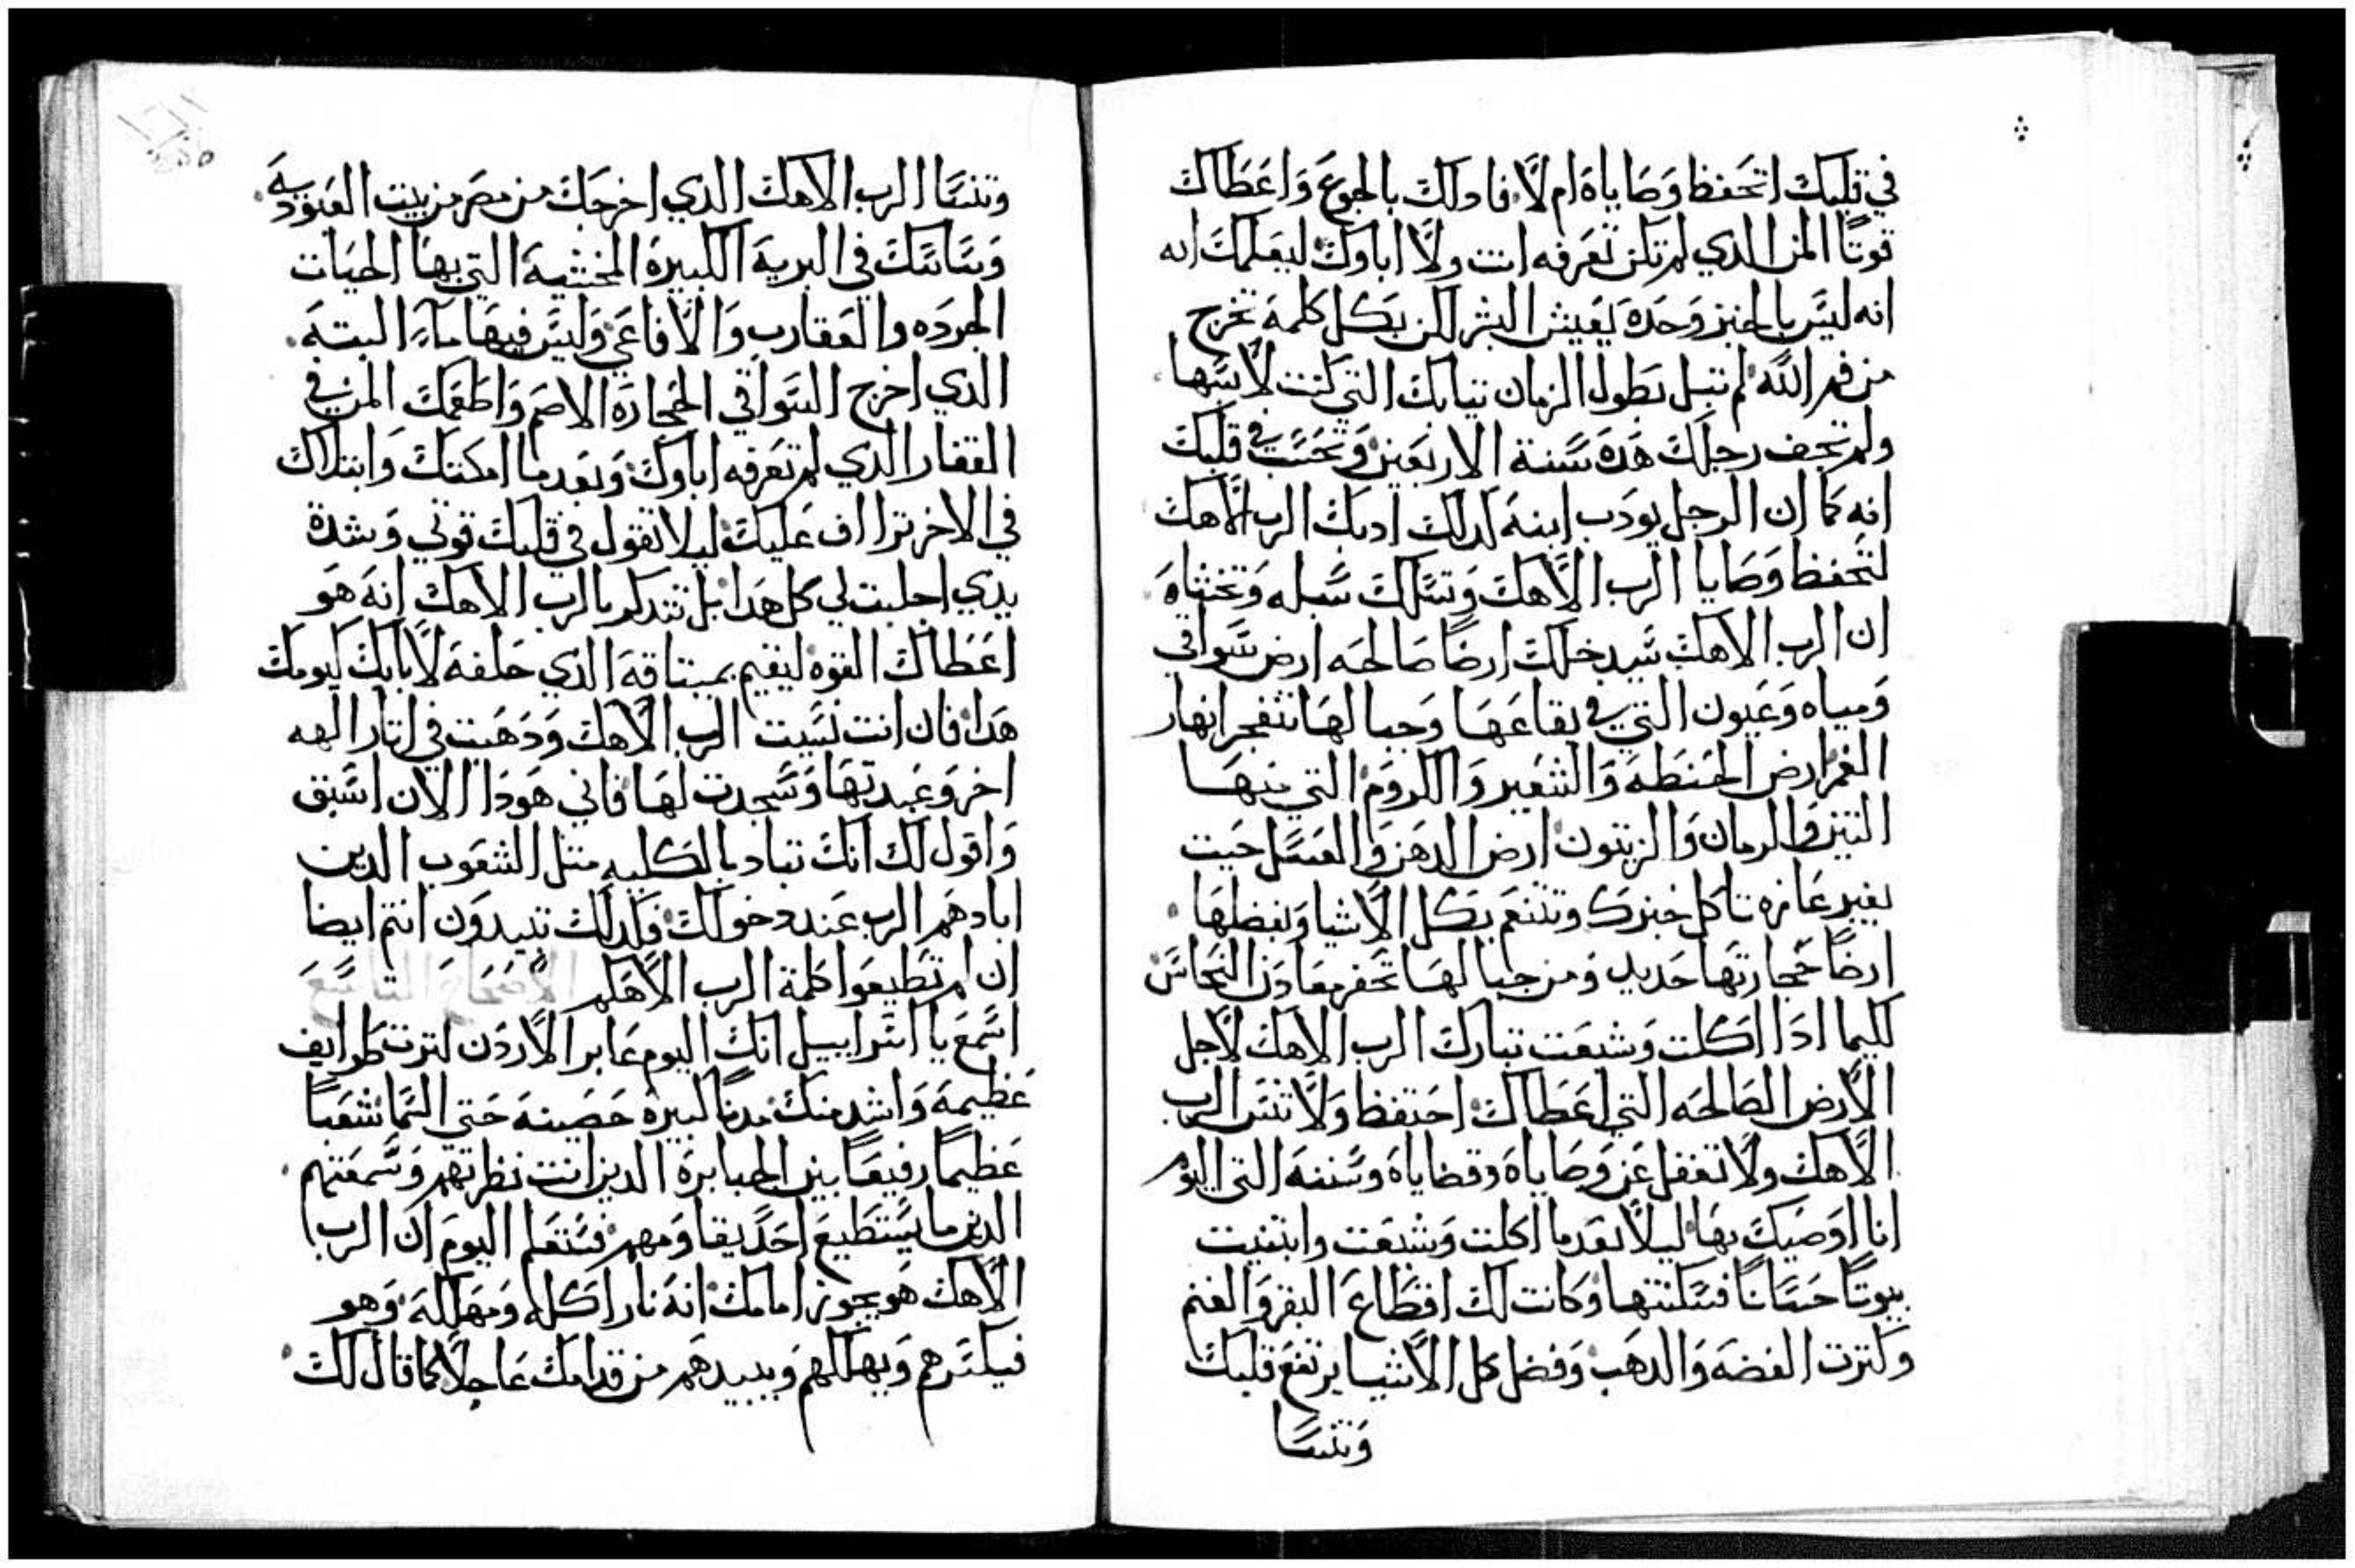 في قلبك اتحفظ وصاياه ام لا فاولك بالجوع واعطاك
قوتًا المن الدي لم تكن تعرفه انت ولا اباوك ليعلمك انه
انه ليس بالخبز وحده يعيش البشر لكن بكل كلمة تخرج
من فم الله لم تبل بطول الزمان تيابك التي كنت لابسها
ولم تحف رجلك هده سنة الاربعين وتحسب في قلبك
انه كما ان الرجل يودب ابنه لدلك ادبك الرب الاهك
لتحفظ وصايا الرب الاهك وتسلك سبله وتخشاه
ان الرب الاهك سيدخلك ارضًا صالحه ارض سواقي
ومياه وعيون التي في بقاعها وجبالها تنفجر انهار
الغمر ارض الحنطه والشعير والكروم التي منها
التين والرمان والزيتون ارض الدهن والعسل حيت
بغير عازه تاكل خبزك وتتنعم بكل الاشيا وبفضلها
ارضًا حجارتها حديد ومن جبالها تحفر معادن النحاس
لكيما ادا اكلت وشبعت تبارك الرب الاهك لاجل
الارض الصالحه التي اعطاك احتفظ ولا تنس الرب
الاهك ولا تغفل عن وصاياه وقضاياه وسننه التي اليوم
انا اوصيك بها ليلا بعد ما اكلت وشبعت وابتنيت
بيوتًا حسانًا فسكنتها وكانت لك اقطاع البقر والغنم
وكترت الفضه والدهب وفضل كل الاشيا يرتفع قلبك
وتنسا
وتنسا الرب الاهك الدي اخرجك من مصر من بيت العبوديه
وساسك في البرية الكبيرة المخشية التي بها الحيات
الجرده والعقارب والافاعي وليس فيها مآء البتة
الدي اخرج السواقي الحجارة الاصم واطعمك المن في
القفار الدي لم تعرفه اباوك وبعد ما امكنك وابتلاك
في الاخر تراف عليك ليلا تقول في قلبك قوتي وشدة
يدي اجلبت لي كل هدا بل تتدكر بالرب الاهك انه هو
اعطاك القوه ليقيم بميتاقه الدي حلفه لابايك كيومك
هدا فان انت نسيت الرب الاهك ودهبت في اتار الهه
اخر وعبدتها وسجدت لها فاني هودا الان اسبق
واقول لك انك تباد بالكليه متل الشعوب الدين
ابادهم الرب عند دخولك فكدلك تبيدون انتم ايضا
ان لم تطيعوا كلمة الرب الاهكم الاصحاح التاسع
اسمع يا اسراييل انك اليوم عابر الاردن لترت طوايف
عظيمة واشد منك مدنًا كبيرة حصينة حتي السما شعبًا
عظيمًا رفيعًا بين الجبابرة الدين انت نظرتهم وسمعتهم
الدين ما يستطيع احد يقاومهم فستعلم اليوم ان الرب
الاهك هو يجوز امامك انه نار اكله ومهلكه وهو
فيكسرهم ويهلكهم ويبيدهم من قدامك عاجلًا كما قال لك